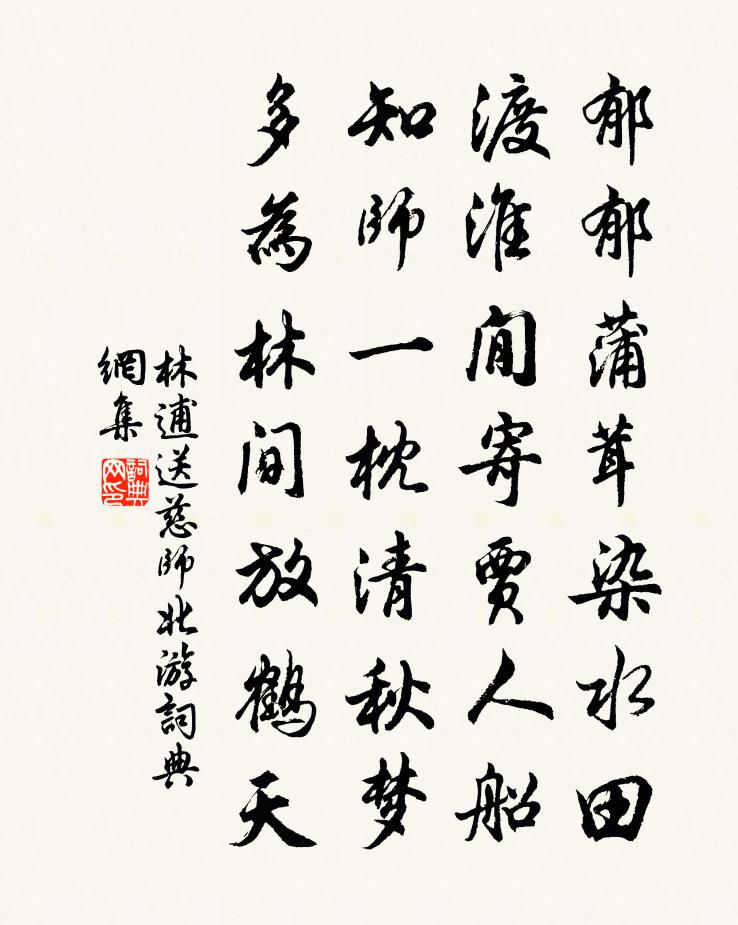 郁郁蒲茸染水田
渡淮閒寄賈人船
知師一枕清秋梦
多為林间放鶴天
林逋送慈師北游詞典
網集
詞典網印